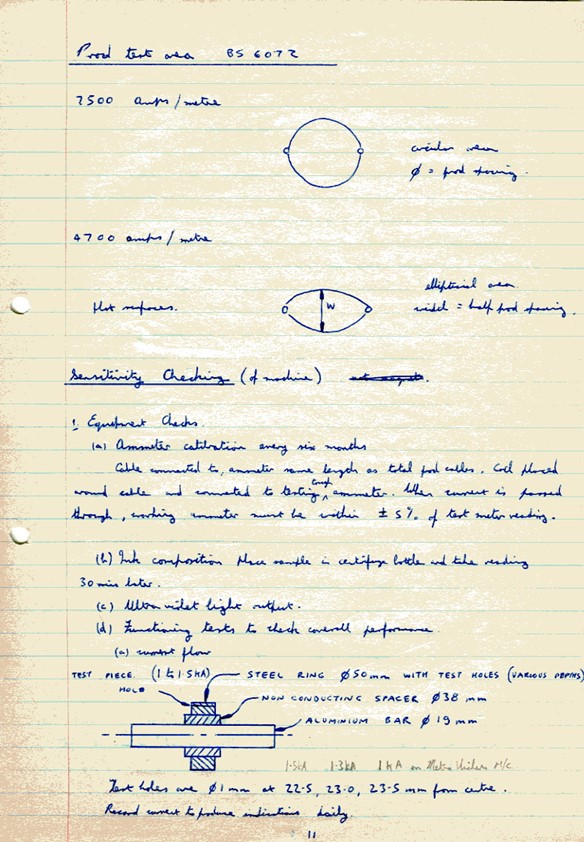 Prod test area BS 6072
7500 amps/metre
circular area
φ = prod spacing.
4700 amps/metre
elliptical area
width = half prod spacing.
W
flat surfaces.
Sensitivity Checking (of machine)
1. Equipment Checks.
(a) Ammeter calibration every six months
Cable connected to, ammeter same length as total prod cables. Coil placed
around cable and connected to testing ammeter. When current is passed
through, working ammeter must be within ± 5% of test meter reading.
(b) Ink composition place sample in centrifuge bottle and take reading
30 mins later.
(c) Ultra violet light output.
(d) Functioning tests to check overall performance.
(a) current flow
TEST PIECE. (1 to 1.5kA) STEEL RING φ50mm WITH TEST HOLES (VARIOUS DEPTHS)
HOLE NON CONDUCTING SPACER φ38 mm
ALUMINIUM BAR φ19mm
1.5kA 1.3kA 1kA on Metro Vickers M/c
Test holes are φ1mm at 22.5, 23.0, 23.5 mm from centre.
Record current to produce indications daily.
11